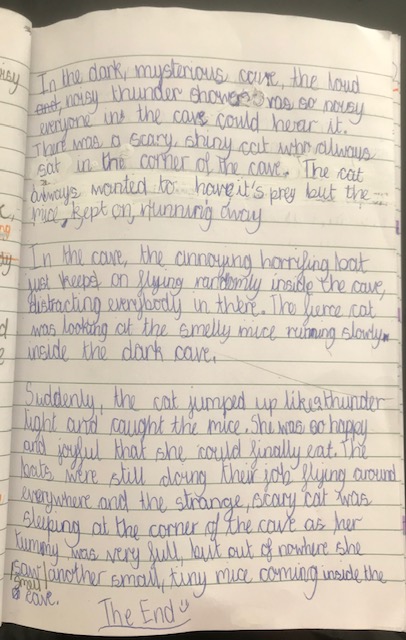 In the dark, mysterious cave, the loud
and, noisy thunder showers was so noisy
everyone in the cave could hear it.
There was a scary, shiny cat who always
sat in the corner of the cave. The cat
always wanted to have it's prey but the
mice kept on running away
In the cave, the annoying horrifing bat
just keeps on flying randomly inside the cave,
distracting everybody in there. The fierce cat
was looking at the smelly mice running slowly
inside the dark cave.
Suddenly, the cat jumped up like thunder
light and caught the mice. She was so happy
and joyful that she could finally eat. The
bats were still doing their job flying around
everywhere and the strange, scary cat was
sleeping at the corner of the cave as her
tummy was very full, but out of nowhere she
saw another small, tiny mice coming inside the
small cave.
The End